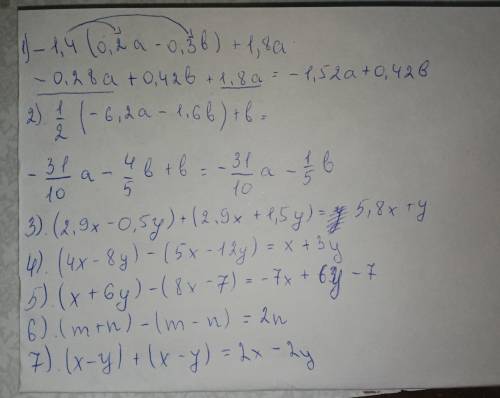 1) -1,4 (0,2a - 0,3b) + 1,8a
-0,28a + 0,42b + 1,8a = -1,52a + 0,42b
2). 1/2 (-6,2a - 1,6b) + b =
-31/10 a - 4/5 b + b = -31/10 a - 1/5 b
3). (2,9x - 0,5y) + (2,9x + 1,5y) = 5,8x + y
4). (4x - 8y) - (5x - 12y) = x + 3y
5). (x + 6y) - (8x - 7) = -7x + 6y - 7
6). (m + n) - (m - n) = 2n
7). (x - y) + (x - y) = 2x - 2y